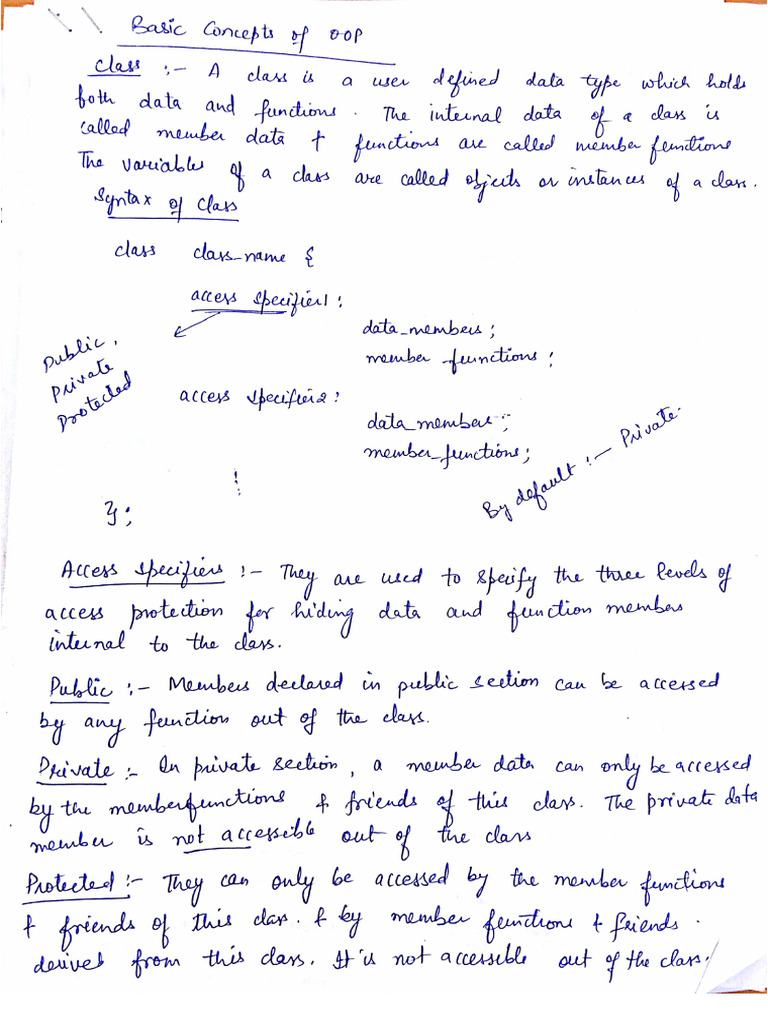 Basic Concepts of OOP
Class :- A class is a user defined data type which holds
both data and functions. The internal data of a class is
called member data + functions are called member functions
The variables of a class are called objects or instances of a class.
Syntax of Class
class class_name {
access specifier1 :
data_members ;
member_functions ;
Public,
Private
Protected
access specifier2 :
data_members ;
member_functions ;
By default :- Private.
};
Access Specifiers :- They are used to specify the three levels of
access protection for hiding data and function members
internal to the class.
Public :- Members declared in public section can be accessed
by any function out of the class.
Private :- In private section, a member data can only be accessed
by the member functions + friends of this class. The private data
member is not accessible out of the class
Protected :- They can only be accessed by the member functions
+ friends of this class. + by member functions + friends.
derived from this class. It is not accessible out of the class.